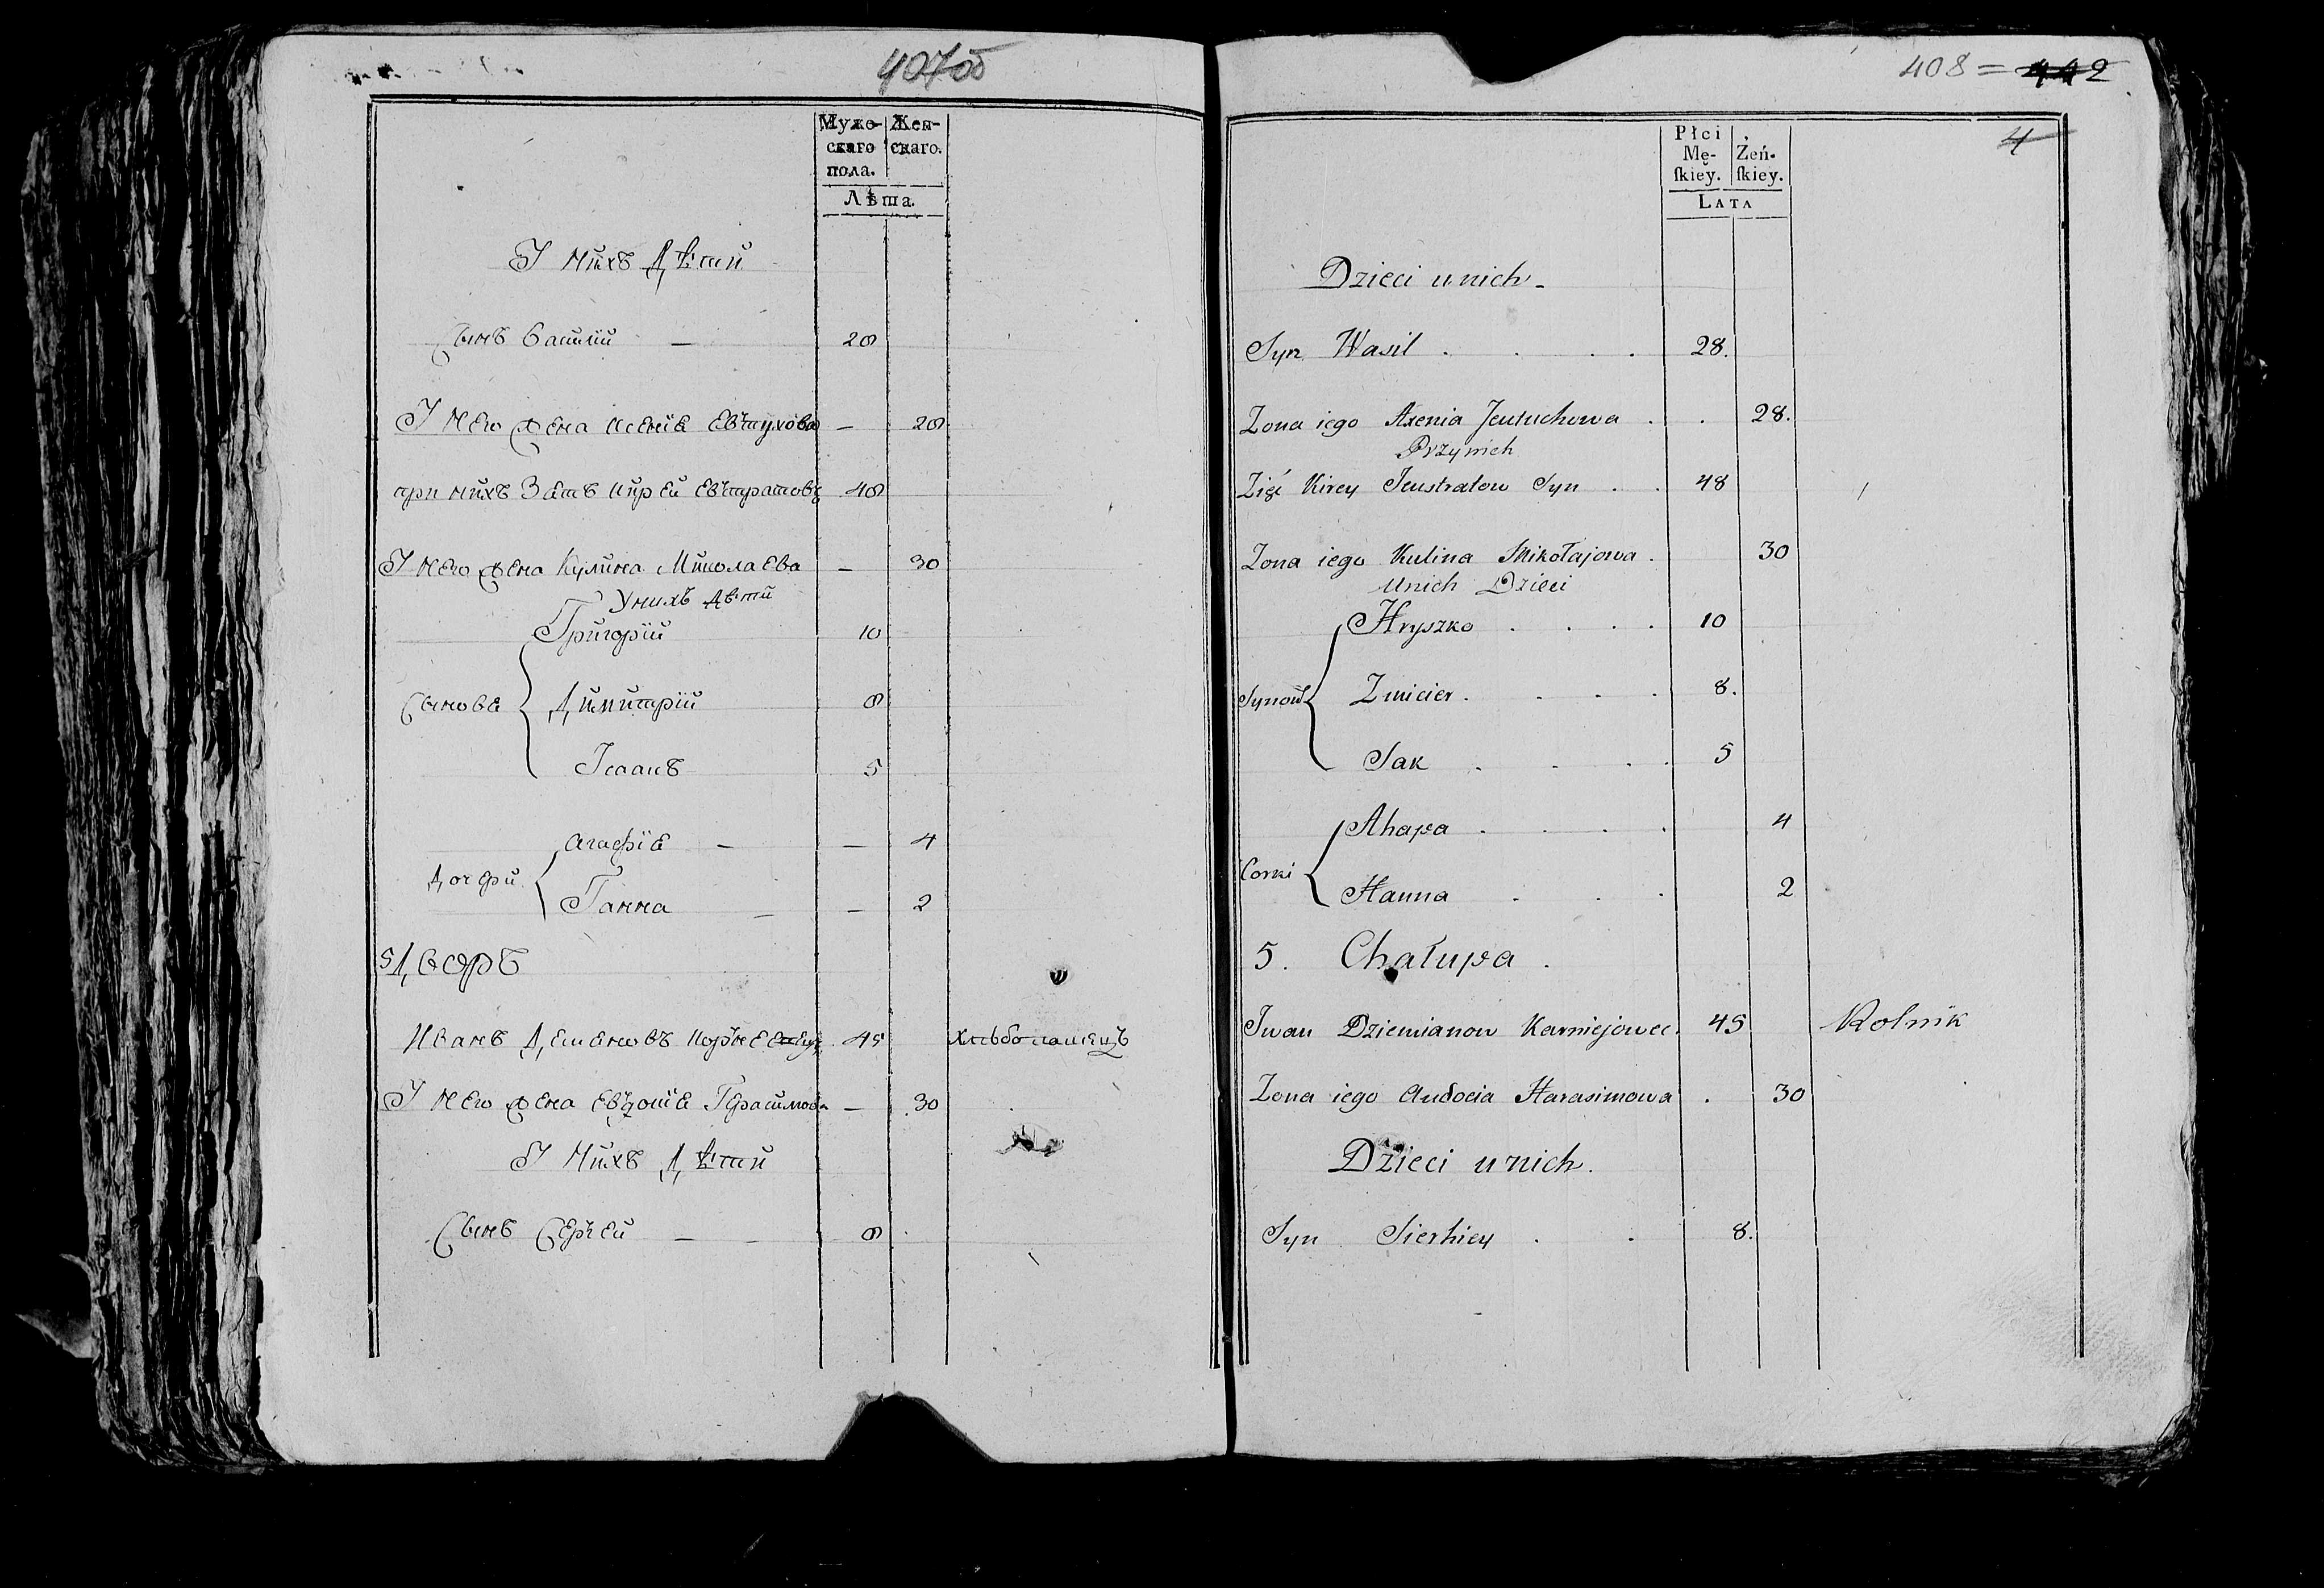 407об
Муже- Жен-
скаго скаго.
пола.
Лѣта.
У нихъ дѣти
Сынъ Василий — 28
У него жена Ксения Евтухова — 28
при нихъ Зять Кирей Евстратовъ 48
У него жена Кулина Миколаева — 30
У нихъ дѣти
Григорий 10
Сыновя Димитрий 8
Исаакъ 5
Агафия — — 4
Дочери
Ганна — — 2
5 Дворъ
Иванъ Демяновъ 45 хлѣбопашецъ
У него жена Евдокия Герасимова — 30
У Нихъ Дѣти
Сынъ Сергей — — 8
408 = 442
4
Płci Żeń-
Mę- ſkiey.
ſkiey.
LATA
Dzieci u nich -
Syn Wasil . . . . 28.
Zona iego Axenia Jeutuchowa . . 28.
Przy nich
Zięć Kirey Jeustratow Syn . . 48
Zona iego Kulina Mikołajowa . 30
u nich Dzieci
Hryszko . . . . 10
Synow Zmicier . . . . 8.
Isak . . . . 5
Ahapa . . . . 4
Corki
Hanna . . . 2
5. Chałupa .
Iwan Dziemianow Karniejowec. 45 Rolnik
Zona iego Audocia Harasimowa . 30
Dzieci u nich.
Syn Sierhiey . . 8.